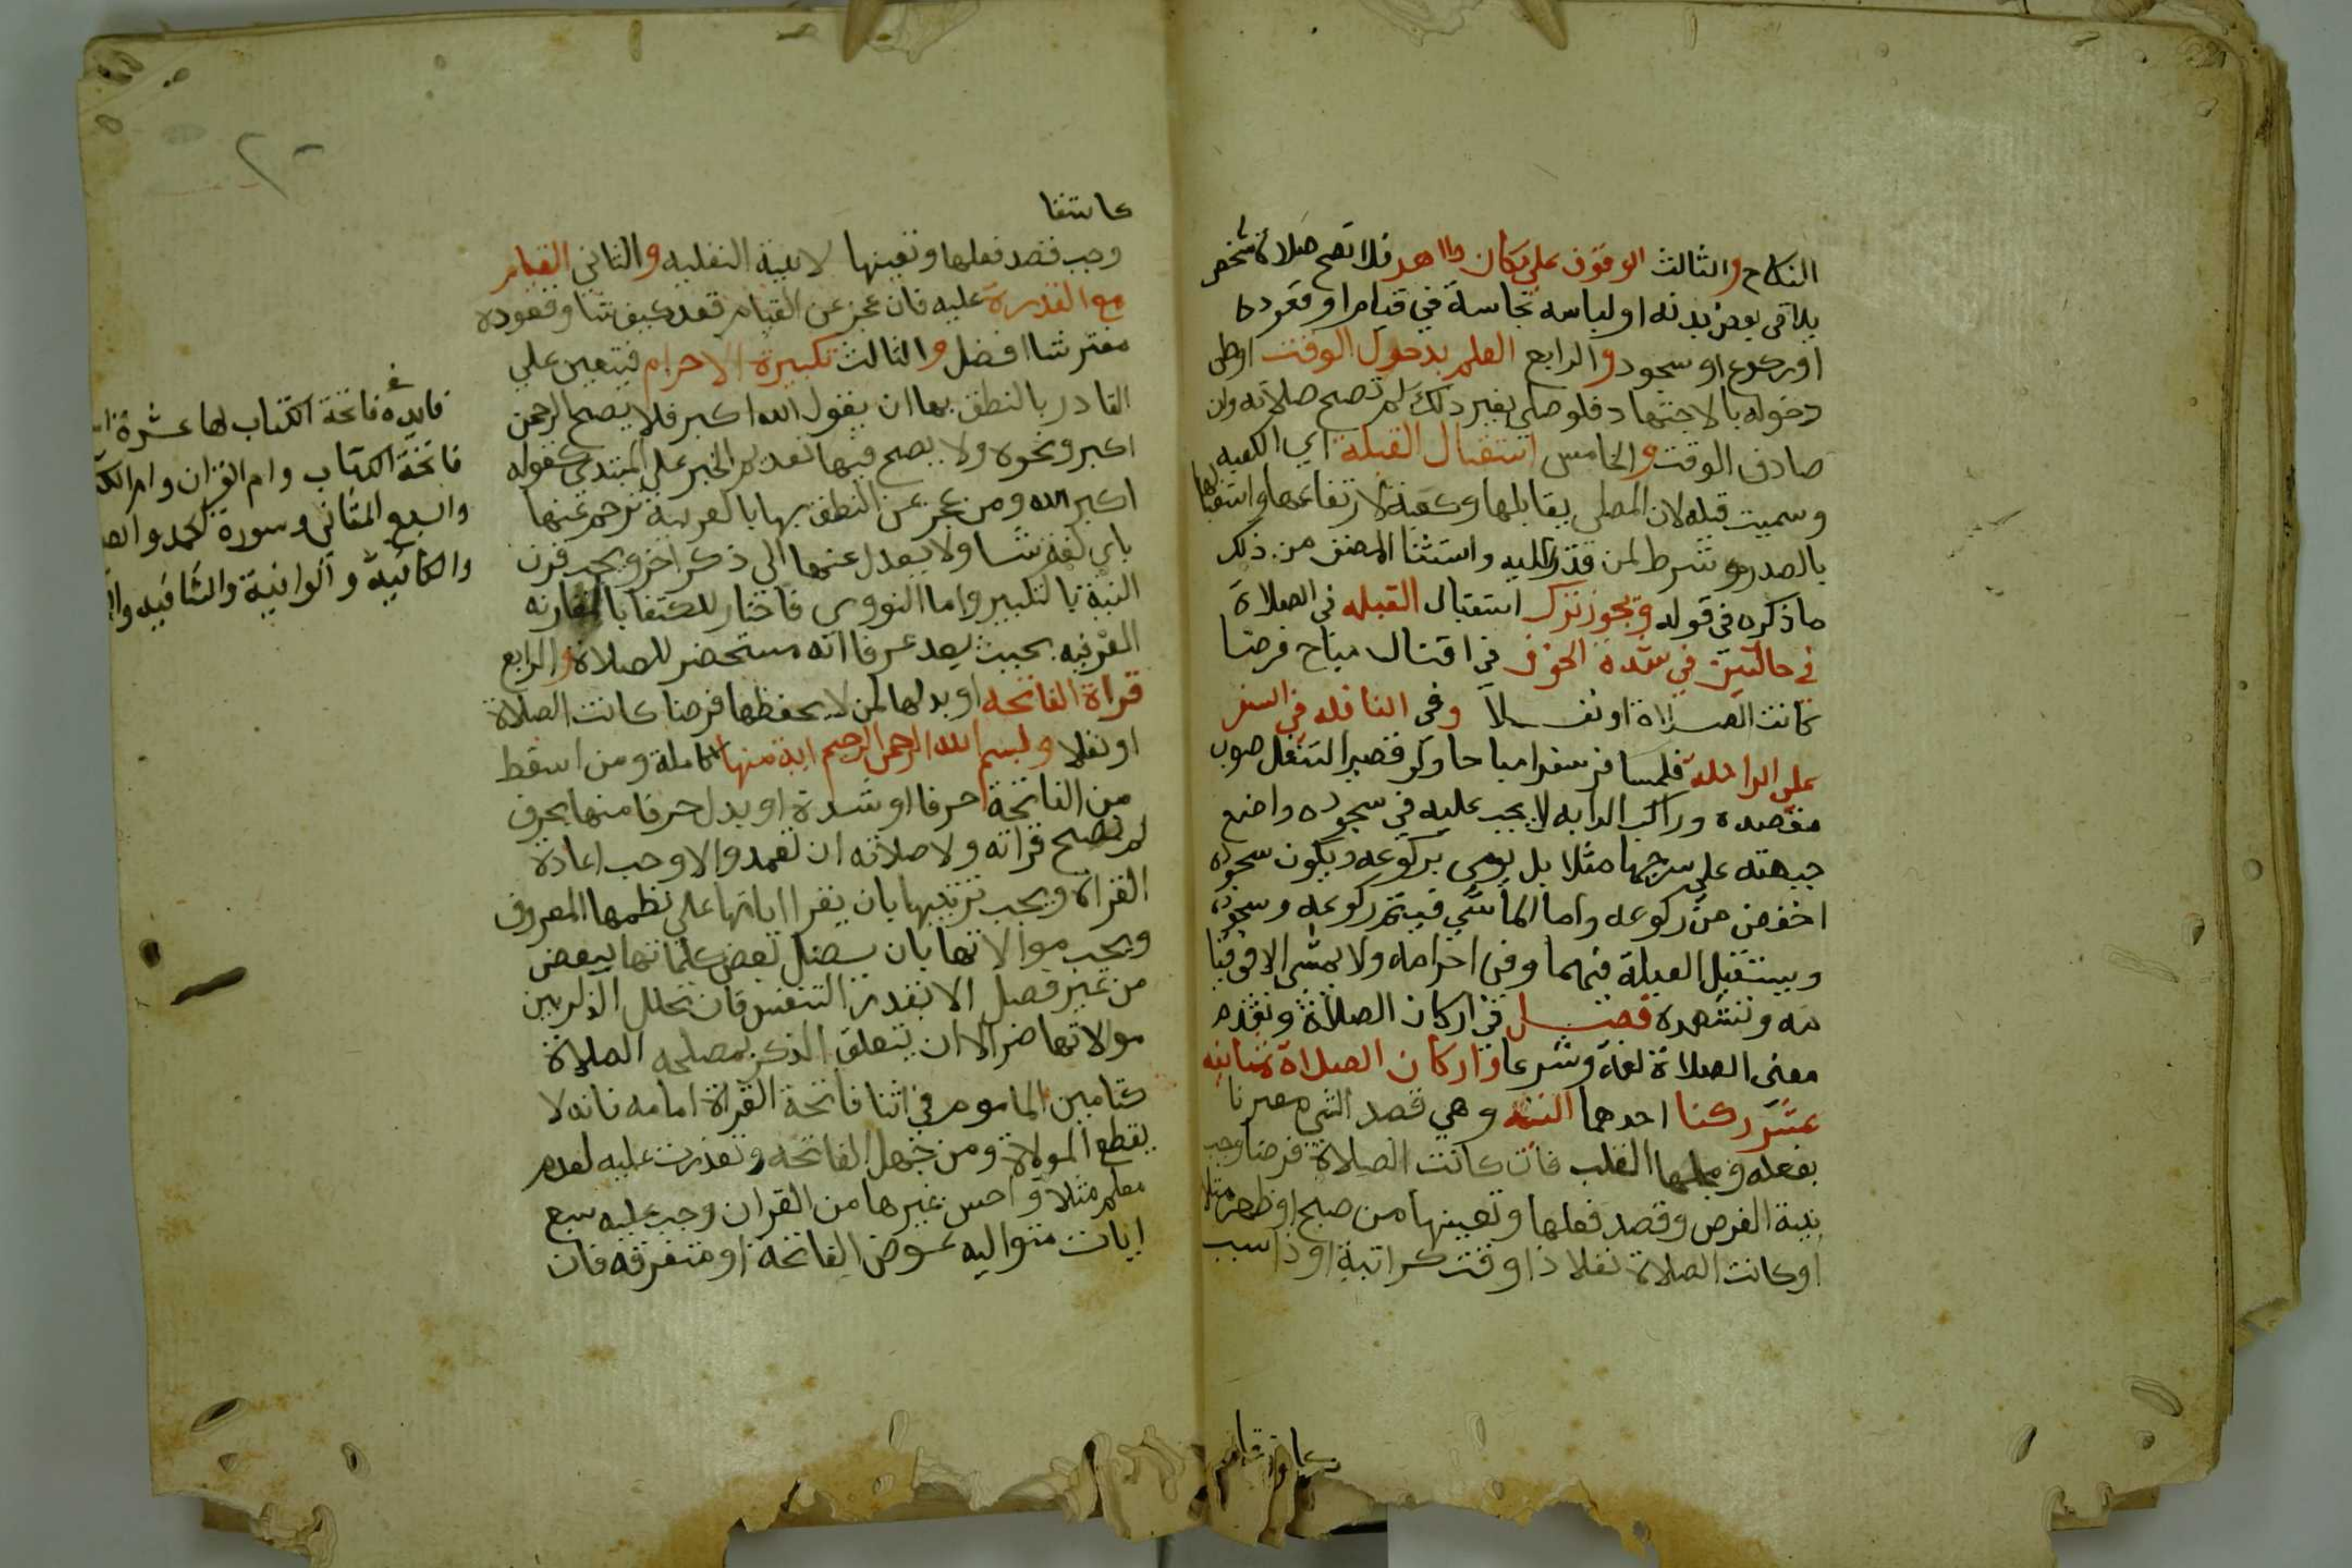 النكاح والثالث الوقوف علي مكان طاهر فلا تصح صلاة شخص
يلاقي بعض بدنه او لباسه نجاسة في قيام او قعود
او ركوع او سجود والرابع العلم بدخول الوقت او ظن
دخوله بالاجتهاد فلو صلي بغير ذلك لم تصح صلاته وان
صادف الوقت والخامس استقبال القبلة اي الكعبه
وسميت قبله لان المصلي يقابلها وكعبة لارتفاعها واستقبالها
بالصدر شرط لمن قدر عليه واستثنا المصنف من ذلك
ما ذكره في قوله ويجوز ترك استقبال القبله في الصلاة
في حالتين في شدة الخوف في اقتال مباح فرضا
كانت الصلاة او نفلا وفي النافله في السفر
علي الراحلة فلمسافر سفرا مباحا ولو قصير التنفل صوب
مقصده وراكب الدابه لا يجب عليه في سجوده واضع
جبهته علي سرجها مثلا بل يومي بركوعه ويكون سجوده
اخفض من ركوعه واما الماشي فيتم ركوعه وسجوده
ويستقبل القبلة فيهما وفي احرامه ولا يمشي الا في قيا
مه وتشهده فصل في اركان الصلاة وتقدم
معني الصلاة لغة وشرعا واركان الصلاة ثمانيه
عشر ركنا احدها النيه وهي قصد الشي مقترنا
بفعله ومحلها القلب فان كانت الصلاة فرضا وجب
نية الفرض وقصد فعلها وتعيينها من صبح او ظهر مثلا
او كانت الصلاة نفلا ذا وقت كراتبة او ذا سبب
كاستقا
وجب قصد فعلها وتعينها لا نية النفليه والثاني القيام
مع القدرة عليه فان عجز عن القيام قعد كيف شا وقعوده
مفترشا افضل والثالث تكبيرة الاحرام فيتعين علي
القادر بالنطق بها ان يقول الله اكبر فلا يصح الرحمن
اكبر ونحوه ولا يصح فيها تقديم الخبر علي المبتدي كقوله
اكبر الله ومن عجز عن النطق بها بالعربية ترجم عنها
باي لغة شا ولا يعدل عنها الي ذكر اخر ويجب قرن
النية بالتكبير واما النووي فاختار الاكتفا بالمقارنه
العرفيه بحيث يعد عرفا انه مستحضر للصلاة والرابع
قراة الفاتحه او بدلها لمن لا يحفظها فرضا كانت الصلاة
او نفلا وبسم الله الرحمن الرحيم اية منها كاملة ومن اسقط
من الفاتحة حرفا او شدة او بدل حرفا منها بحرف
لم تصح قراته ولا صلاته ان تعمد والا وجب اعادة
القراة ويجب ترتيبها بان يقرا اياتها علي نظمها المعروف
ويجب موالاتها بان يصل بعض كلماتها ببعض
من غير فصل الا بقدر التنفس فان تخلل الذكر بين
موالاتها ضر الا ان يتعلق الذكر بمصلحه الصلاة
كتامين الماموم في اثنا فاتحة القراة امامه فانه لا
يقطع المولاة ومن جهل الفاتحه وتعذرت عليه لعدم
معلم مثلا واحسن غيرها من القران وجب عليه سبع
ايات متواليه عوض الفاتحة او متفرقه فان
فايده فاتحة الكتاب لها عشرة
فاتحة الكتاب وام القران وام
والسبع المثاني وسورة الحمد
والكافية والوافية والشافيه